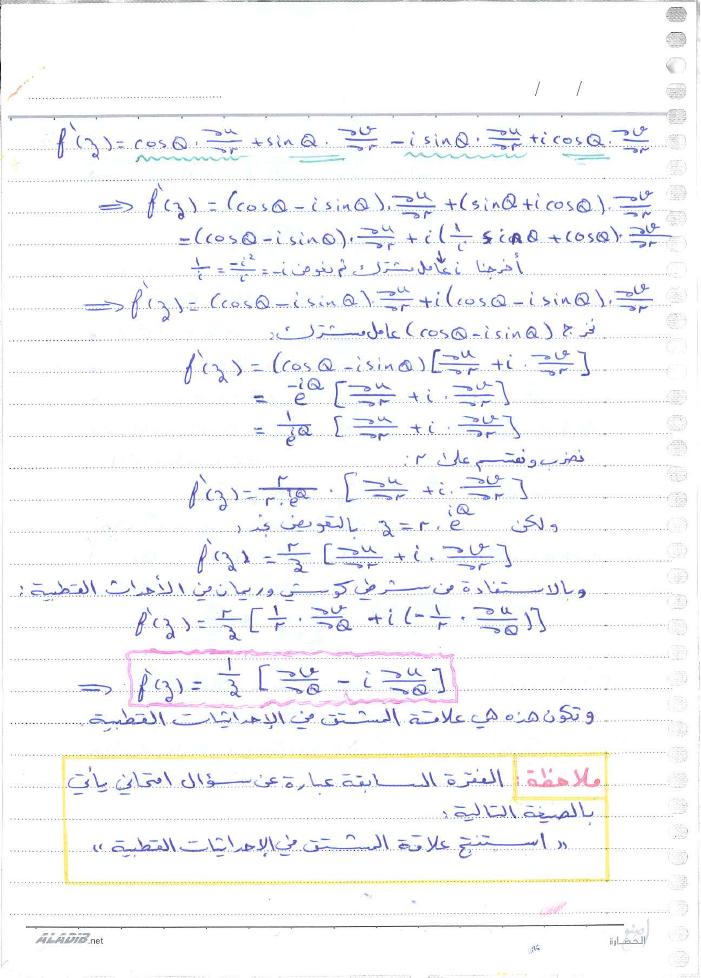 / /
f'(z) = cosθ · ∂u/∂r + sinθ · ∂v/∂r − i sinθ · ∂u/∂r + i cosθ · ∂v/∂r
⇒ f'(z) = (cosθ − i sinθ) · ∂u/∂r + (sinθ + i cosθ) · ∂v/∂r
= (cosθ − i sinθ) · ∂u/∂r + i (1/i sinθ + cosθ) · ∂v/∂r
أخرجنا i عامل مشترك ثم نعوض 1/i = −i²/i = −i
⇒ f'(z) = (cosθ − i sinθ) · ∂u/∂r + i (cosθ − i sinθ) · ∂v/∂r
نخرج (cosθ − i sinθ) عامل مشترك:
f'(z) = (cosθ − i sinθ) [∂u/∂r + i · ∂v/∂r]
= e^{−iθ} [∂u/∂r + i · ∂v/∂r]
= 1/e^{iθ} [∂u/∂r + i · ∂v/∂r]
نضرب ونقسم على r:
f'(z) = r/(r·e^{iθ}) · [∂u/∂r + i · ∂v/∂r]
ولكن z = r · e^{iθ} بالتعويض نجد:
f'(z) = r/z [∂u/∂r + i · ∂v/∂r]
وبالاستفادة من شرطي كوشي وريمان في الأحداث القطبية:
f'(z) = r/z [1/r · ∂v/∂θ + i (−1/r · ∂u/∂θ)]
⇒ f'(z) = 1/z [∂v/∂θ − i ∂u/∂θ]
وتكون هذه هي علاقة المشتق في الإحداثيات القطبية
ملاحظة: الفقرة السابقة عبارة عن سؤال امتحاني يأتي
بالصيغة التالية:
"استنتج علاقة المشتق في الإحداثيات القطبية"
ALADIB.net
الحضارة